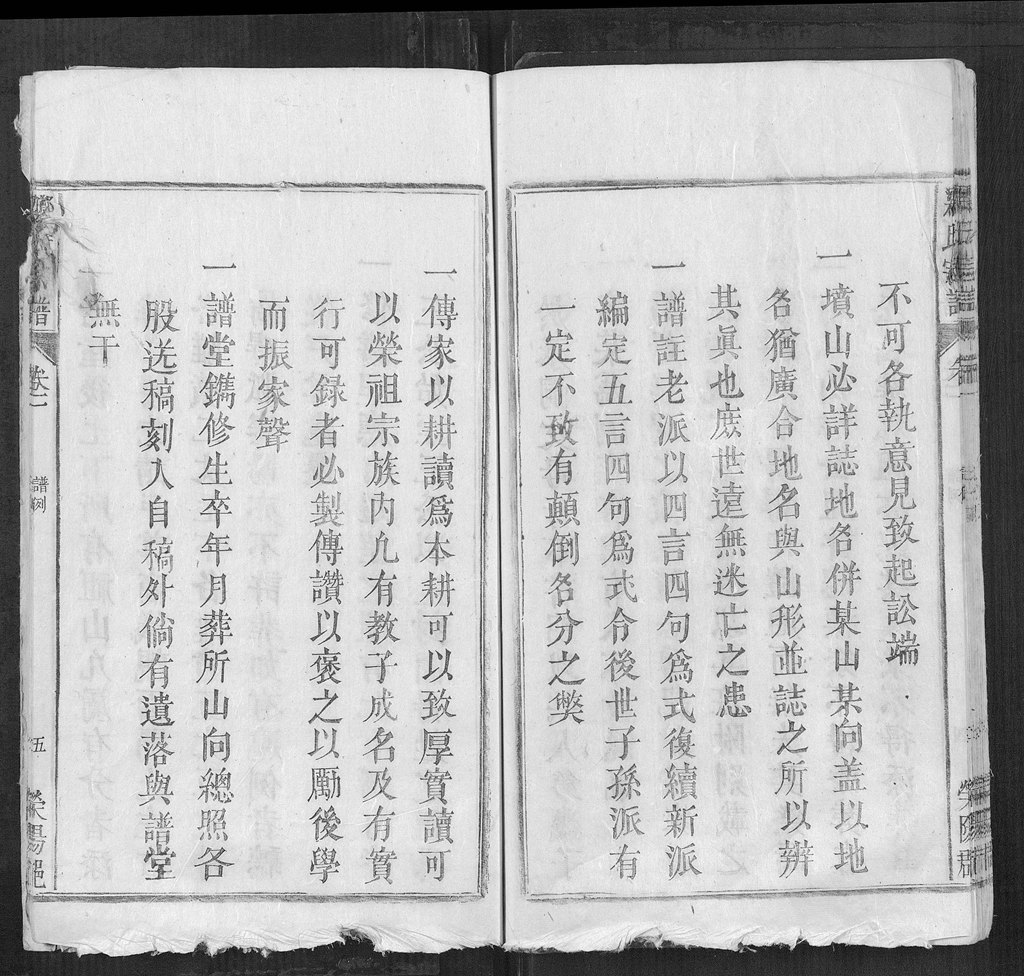 不可各執意見致起訟端
一墳山必詳誌地名併某山某向盖以地
名猶廣合地名與山形並誌之所以辨
其眞也庶世遠無迷亡之患
一譜註老派以四言四句爲式復續新派
編定五言四句爲式令後世子孫派有
一定不致有顛倒名分之獘
一傳家以耕讀爲本耕可以致厚實讀可
以榮祖宗族内凢有教子成名及有實
行可録者必製傳讚以褒之以勵後學
而振家聲
一譜堂鐫修生卒年月葬所山向總照各
股送稿刻入自稿外倘有遺落與譜堂
無干
譜
卷二
譜例
五